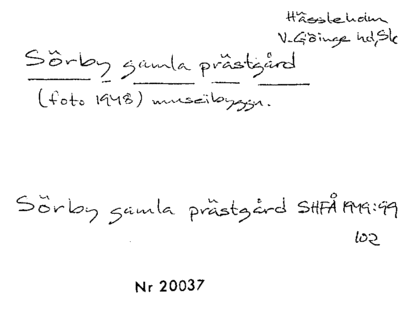 Hässleholm
V. Göinge hd, Sk
Sörby gamla prästgård
(foto 1948) museibyggn.
Sörby gamla prästgård SHFÅ 1949:99
102
Nr 20037